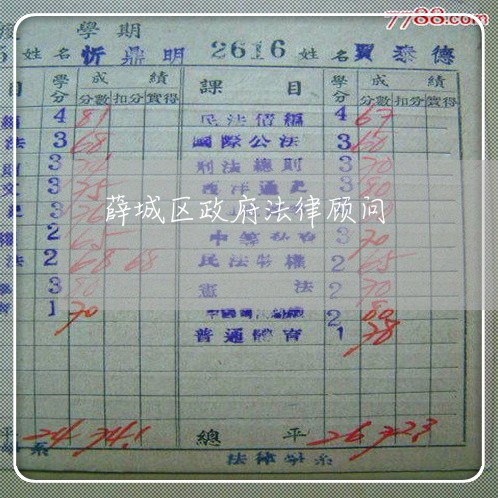 7788.com
學期
5 姓名 忻鼎明 2616 姓名 賈泰德
目 學分 成績 課目 學分 成績
分數 扣分 實得 分數 扣分 實得
4 81 民法債編 4 67
法 3 68 國際公法 3 60
3 刑法總則 3 70
3 75 西洋通史 3 80
3 3
薛城区政府法律顾问
權 2 65 3 70
法 2 68 68 民法物權 2 65
3 80 憲法 2 70
1 70 2 80
普通體育 1 78
平 24 74.1 總平 26 72.3
系 法律學系